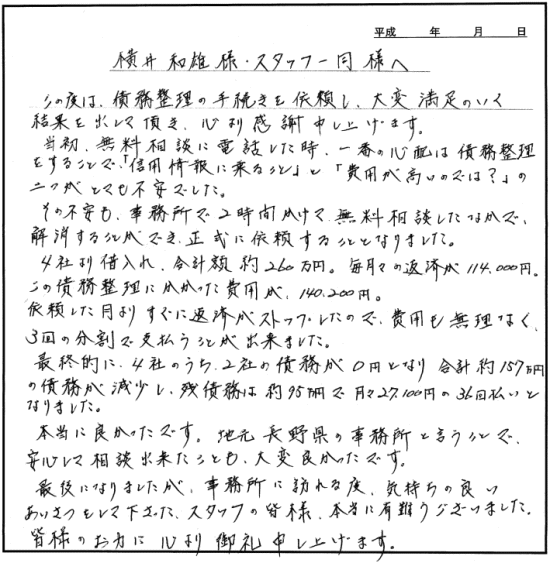 平成　　年　　月　　日
横井和雄様・スタッフ一同様へ
この度は、債務整理の手続きを依頼し、大変満足のいく
結果を出して頂き、心より感謝申し上げます。
当初、無料相談に電話した時、一番の心配は債務整理
をすることで、「信用情報に乗ること」と「費用が高いのでは？」の
二つがとても不安でした。
その不安も、事務所で2時間かけて無料相談したなかで、
解消することができ、正式に依頼することとなりました。
4社より借入れ、合計額約260万円。毎月々の返済が114,000円。
この債務整理にかかった費用が、140,200円。
依頼した月よりすぐに返済がストップしたので、費用も無理なく、
3回の分割で支払うことが出来ました。
最終的に、4社のうち、2社の債務が0円となり合計約157万円
の債務が減少し、残債務は約95万円で月々27,100円の36回払いと
なりました。
本当に良かったです。地元長野県の事務所と言うことで、
安心して相談出来たことも、大変良かったです。
最後になりましたが、事務所に訪れる度、気持ちの良い
あいさつをして下さった、スタッフの皆様、本当に有難うございました。
皆様のお力に心より御礼申し上げます。